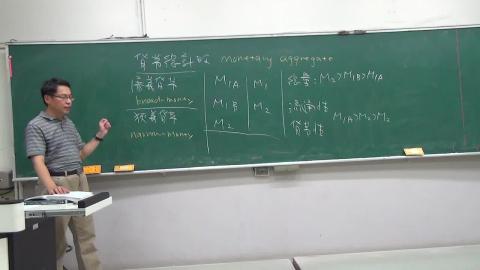 貨幣總計數 monetary aggregate
廣義貨幣
broad money
狹義貨幣
narrow money
M1A M1
M1B M2
M2
總量：M2>M1B>M1A
流通性
貨幣性